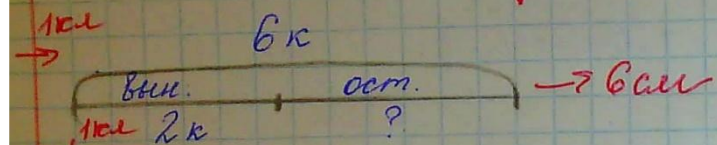 1кл
6 к
вын. ост. → 6 см
1кл 2 к ?